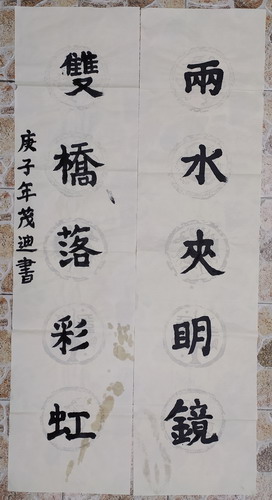 兩水夾明鏡
雙橋落彩虹
庚子年茂迪書